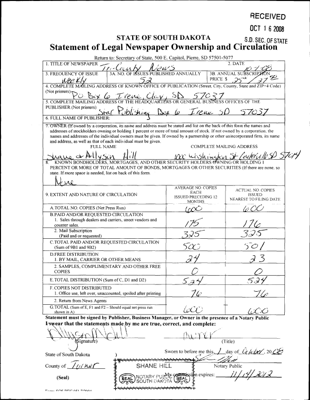 RECEIVED
OCT 16 2008
S.D. SEC. OF STATE
STATE OF SOUTH DAKOTA
Statement of Legal Newspaper Ownership and Circulation
Return to: Secretary of State, 500 E. Capitol, Pierre, SD 57501-5077
1. TITLE OF NEWSPAPER Tri-County News
2. DATE
3. FREQUENCY OF ISSUE Weekly
3A. NO. OF ISSUES PUBLISHED ANNUALLY 52
3B. ANNUAL SUBSCRIPTION PRICE $
4. COMPLETE MAILING ADDRESS OF KNOWN OFFICE OF PUBLICATION (Street, City, County, State and ZIP+4 Code)
(Not printers)
PO Box 6 Irene, Clay, SD 57037
5. COMPLETE MAILING ADDRESS OF THE HEADQUARTERS OR GENERAL BUSINESS OFFICES OF THE
PUBLISHER (Not printer)
Publishing Box 6 Irene SD 57037
6. FULL NAME OF PUBLISHER:
7. OWNER (If owned by a corporation, its name and address must be stated and
addresses of stockholders owning or holding 1 percent or more of total amount of stock. If not owned by a corporation, the
names and addresses of the individual owners must be given. If owned by a partnership or other unincorporated firm, its name
and address, as well as that of each individual must be given.
FULL NAME COMPLETE MAILING ADDRESS
Hill Washington St
8. KNOWN BONDHOLDERS, MORTGAGES, AND OTHER SECURITY HOLDERS OWNING OR HOLDING 1
PERCENT OR MORE OF TOTAL AMOUNT OF BONDS, MORTGAGES OR OTHER SECURITIES (If there are none, so
state. If more space is needed, list on back of this form.
None
9. EXTENT AND NATURE OF CIRCULATION
AVERAGE NO. COPIES EACH ISSUED PRECEDING 12 MONTHS
ACTUAL NO. COPIES ISSUED NEAREST TO FILING DATE
A. TOTAL NO. COPIES (Net Press Run) 600 600
B. PAID AND/OR REQUESTED CIRCULATION
1. Sales through dealers and carriers, street vendors and
counter sales 175 176
2. Mail Subscription
(Paid and/or requested) 325 325
C. TOTAL PAID AND/OR REQUESTED CIRCULATION
(Sum of 9B1 and 9B2) 500 501
D. FREE DISTRIBUTION
1. BY MAIL, CARRIER OR OTHER MEANS 24 23
2. SAMPLES, COMPLIMENTARY AND OTHER FREE
COPIES 0 0
E. TOTAL DISTRIBUTION (Sum of C, D1 and D2) 524 524
F. COPIES NOT DISTRIBUTED
1. Office use, left over, unaccounted, spoiled after printing 76 76
2. Return from News Agents
G. TOTAL (Sum of E, F1 and F2 - Should equal net press run
shown in A) 600 600
Statement must be signed by Publisher, Business Manager, or Owner in the presence of a Notary Public
I swear that the statements made by me are true, correct, and complete:
(Signature) (Title)
State of South Dakota
Sworn to before me this day of October, 20
County of Turner
Notary Public
(Seal)
SHANE HILL
NOTARY PUBLIC
SOUTH DAKOTA
SEAL SEAL